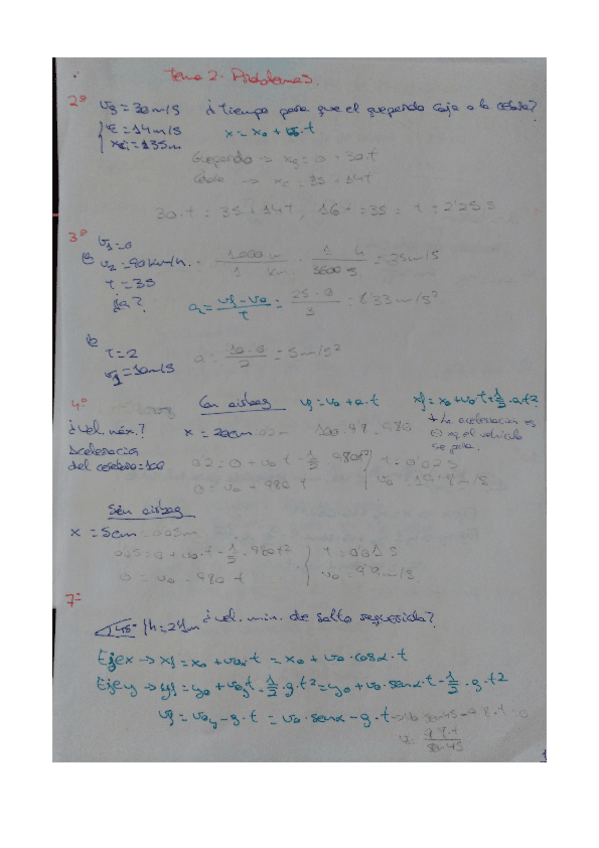 Tema 2. Problemas.
2º vg = 30m/s ¿Tiempo para que el guepardo coja a la cebra?
vc = 14m/s x = x0 + v0.t
xci = 135m
Guepardo → xg = 0 + 30.t
Cebra → xc = 35 + 14t
30.t = 35 + 14t, 16t = 35 = t = 2'25 s
3º v1 = 0
v2 = 90km/h. · 1000 m / 1 km · 1 h / 3600 s = 25m/s
t = 3s
¿a? a = vf - v0 / t = 25 - 0 / 3 = 8'33m/s²
b)
t = 2
vf = 10m/s a = 10-0 / 2 = 5m/s²
4º Con airbag vf = v0 + a.t xf = x0 + v0 t + 1/2 . a.t2
¿vel. máx.? x = 20cm 100.9'8 980 la aceleración es
Aceleración ⊖ xq el vehículo
del cerebro = 100 se para.
0'2 = 0 + v0.t - 1/2 980t² t = 0'02 s
0 = v0 - 980 t v0 = 19'8m/s
Sin airbag
x = 5cm 0.05m
0'05 = 0 + v0.t - 1/2 . 980t2 t = 0'01 s
0 = v0 - 980 t v0 = 9'9m/s
7º
45º h = 2'4m ¿vel. min. de salto requerida?
Eje x → xf = x0 + v0x t = x0 + v0 . cosα . t
Eje y → yf = y0 + v0y t - 1/2 . g . t² = y0 + v0 . senα . t - 1/2 . g . t2
vf = v0y - g . t = v0 . senα - g . t → v0 sen45 - 9'8 . t = 0
v0 = 9'8.t / sen45
1